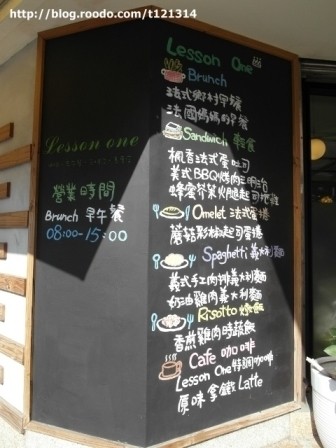 http://blog.roodo.com/t121314
Lesson one
營業時間
Brunch 早午餐
08:00-15:00
Lesson One
Brunch
法式鄉村早餐
法國媽媽的早餐
Sandwich 輕食
楓香法式蛋吐司
美式BBQ烤肉起司堡
蜂蜜芥茉火腿起司可頌
Omelet 法式蛋捲
蘑菇彩椒起司蛋捲
Spaghetti 義大利麵
義式手工肉排義大利麵
奶油雞肉義大利麵
Risotto 燉飯
香煎雞肉時蔬飯
Cafe 咖啡
Lesson One特調咖啡
原味拿鐵Latte